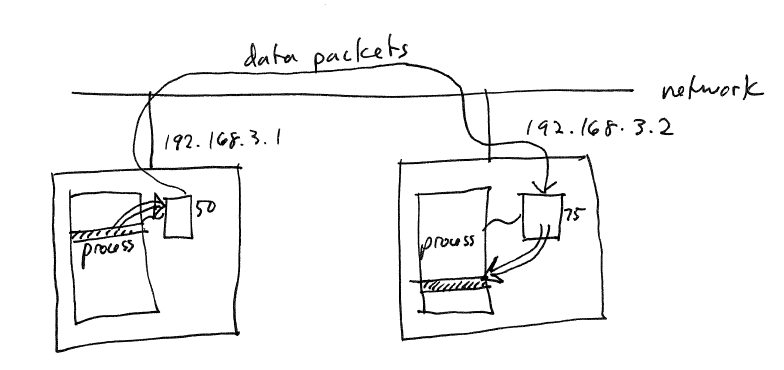 data packets
network
192.168.3.1
192.168.3.2
50
75
process
process